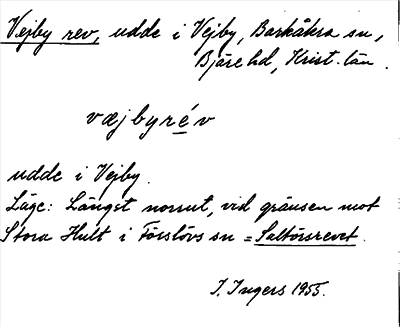 Vejby rev, udde i Vejby, Barkåkra sn,
Bjäre hd, Krist. län.
væjbyrév
udde i Vejby.
Läge: Längst norrut, vid gränsen mot
Stora Hult i Förslövs sn = Saltörsrevet.
I. Ingers 1955.